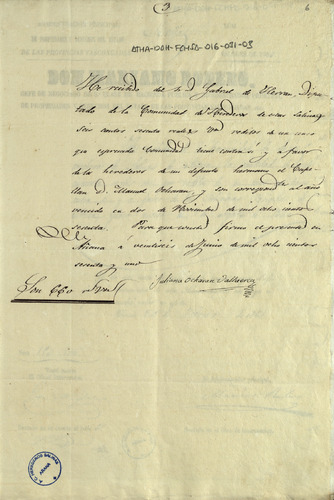 3
6
ATHA-DOH-FCHSA-016-021-03
He recibido del Sr. D. Gabriel de Herran Dipu
tado de la Comunidad de Herederos de estas Salinas
Seis cientos sesenta reales Vn reditos de un censo
que espresada Comunidad tiene contra si y á favor
de los herederos de mi difunto hermano el Cape
llan D. Manuel Ochavan, y son correspond.tes al año
vencido en dos de Noviembre de mil ocho cientos
sesenta. Para que conste firmo el presente en
Añana á veintiseis de Junio de mil ocho cientos
sesenta y uno
Juliana Ochavan
Son 660 rs
ANANA